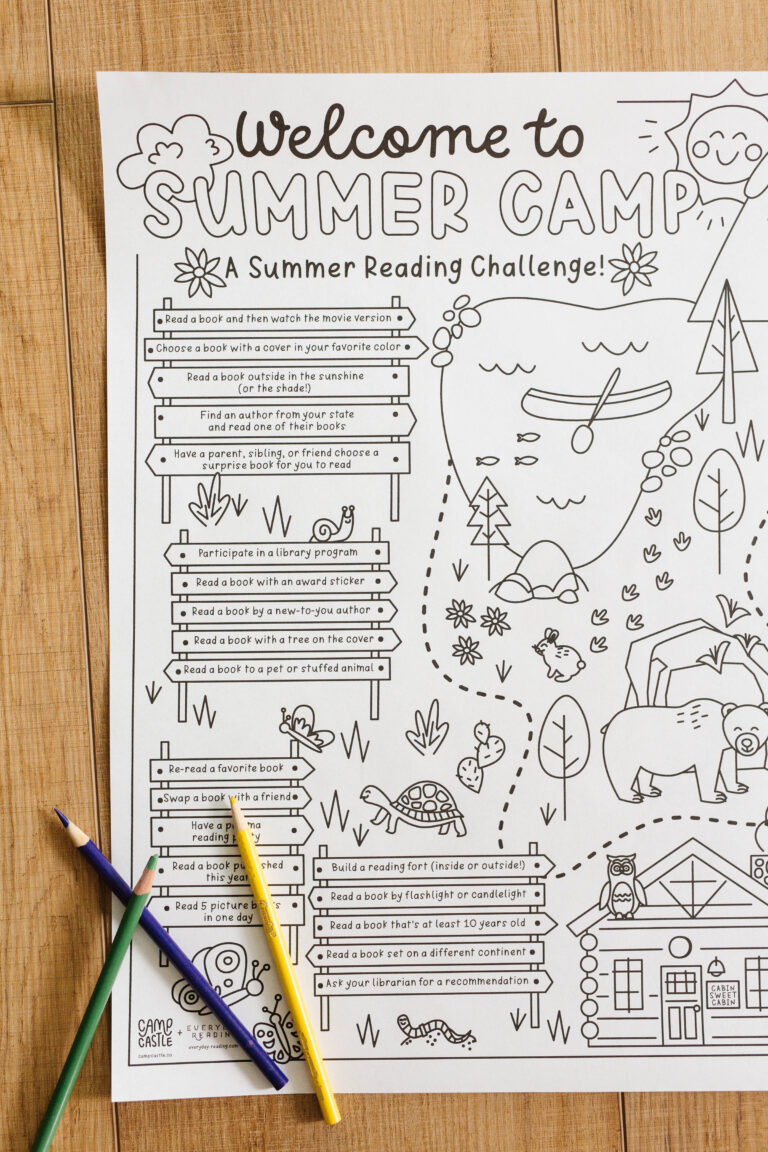 Welcome to
SUMMER CAMP
A Summer Reading Challenge!
Read a book and then watch the movie version
Choose a book with a cover in your favorite color
Read a book outside in the sunshine
(or the shade!)
Find an author from your state
and read one of their books
Have a parent, sibling, or friend choose a
surprise book for you to read
Participate in a library program
Read a book with an award sticker
Read a book by a new-to-you author
Read a book with a tree on the cover
Read a book to a pet or stuffed animal
Re-read a favorite book
Swap a book with a friend
Have a
reading
Read a book
this year
Read 5 picture
in one day
Build a reading fort (inside or outside!)
Read a book by flashlight or candlelight
Read a book that's at least 10 years old
Read a book set on a different continent
Ask your librarian for a recommendation
CABIN
SWEET
CABIN
CAMP
CASTLE
campcastle.co
+
READING